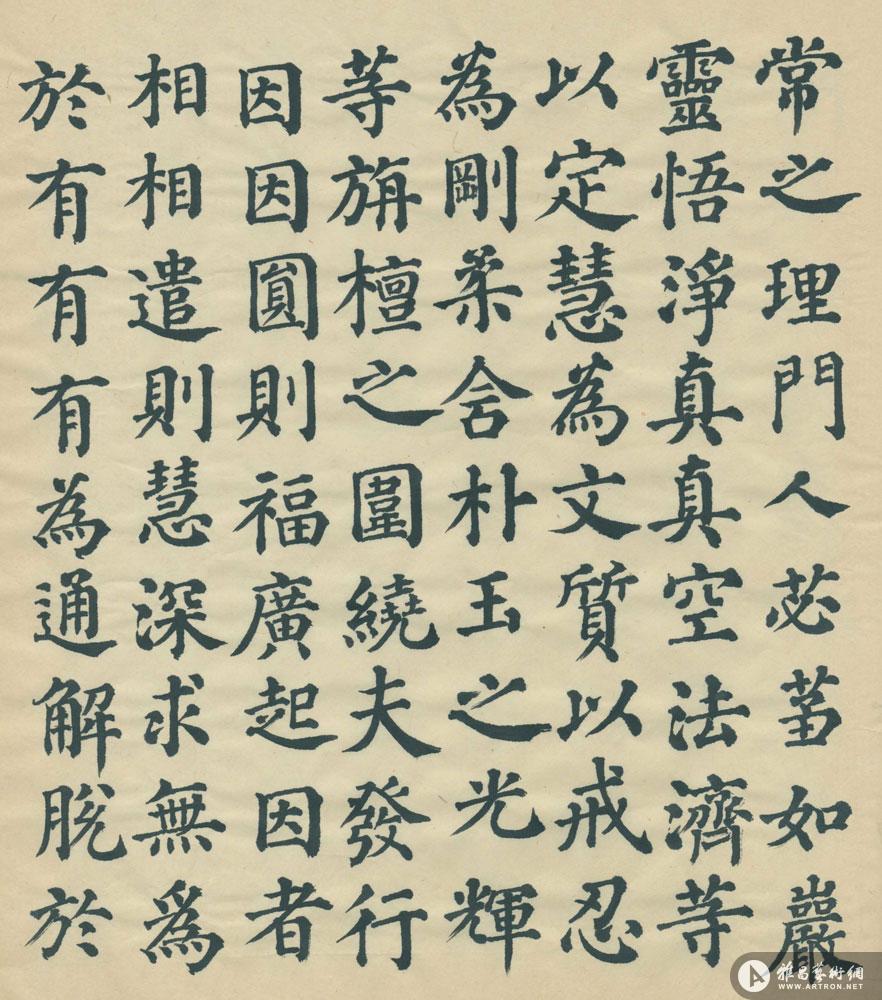 常之理門人苾蒭如巖
靈悟淨真真空法濟等
以定慧為文質以戒忍
為剛柔含朴玉之光輝
等旃檀之圍繞夫發行
因因圓則福廣起因者
相相遣則慧深求無爲
於有有有為通解脫於
雅昌藝術網
WWW.ARTRON.NET